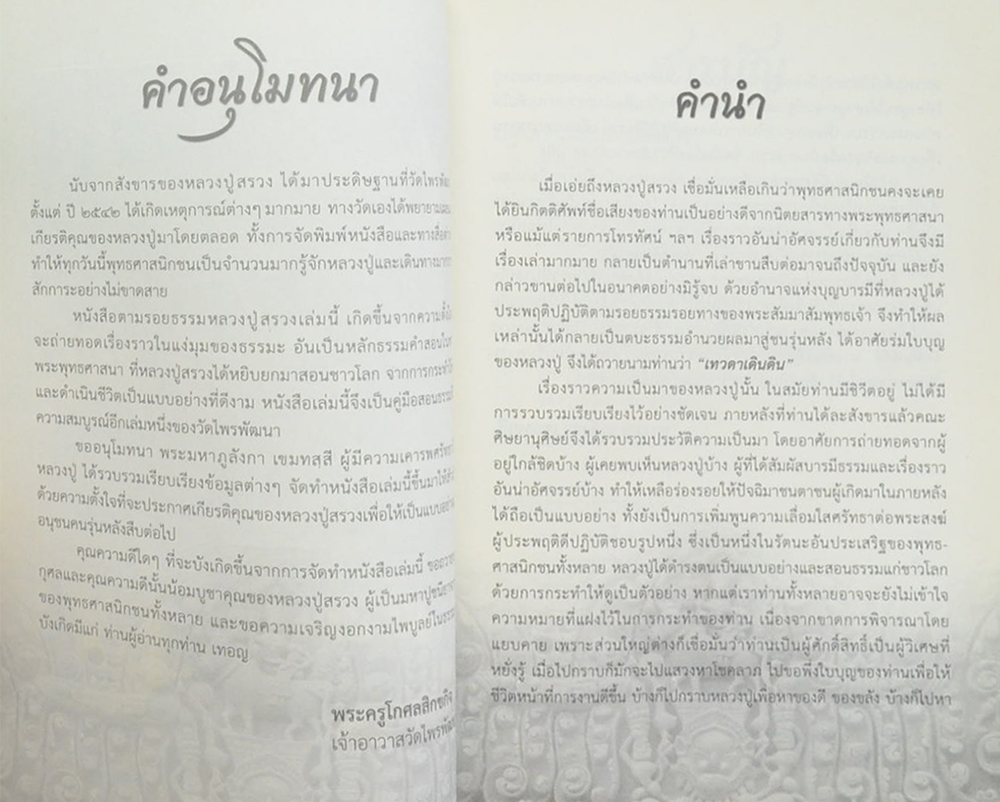 คำอนุโมทนา
นับจากสังขารของหลวงปู่สรวง ได้มาประดิษฐานที่วัดไพรพัฒ
ตั้งแต่ ปี ๒๕๔๒ ได้เกิดเหตุการณ์ต่างๆ มากมาย ทางวัดเองได้พยายาม
เกียรติคุณของหลวงปู่มาโดยตลอด ทั้งการจัดพิมพ์หนังสือและทางสื่อ
ทำให้ทุกวันนี้พุทธศาสนิกชนเป็นจำนวนมากรู้จักหลวงปู่และเดินทางมา
สักการะอย่างไม่ขาดสาย
หนังสือตามรอยธรรมหลวงปู่สรวงเล่มนี้ เกิดขึ้นจากความตั้งใ
จะถ่ายทอดเรื่องราวในแง่มุมของธรรมะ อันเป็นหลักธรรมคำสอนใน
พระพุทธศาสนา ที่หลวงปู่สรวงได้หยิบยกมาสอนชาวโลก จากการกระทำ
และดำเนินชีวิตเป็นแบบอย่างที่ดีงาม หนังสือเล่มนี้จึงเป็นคู่มือสอนธรรม
ความสมบูรณ์อีกเล่มหนึ่งของวัดไพรพัฒนา
ขออนุโมทนา พระมหาภูลังกา เขมทสฺสี ผู้มีความเคารพศรัทธา
หลวงปู่ ได้รวบรวมเรียบเรียงข้อมูลต่างๆ จัดทำหนังสือเล่มนี้ขึ้นมาให้
ด้วยความตั้งใจที่จะประกาศเกียรติคุณของหลวงปู่สรวงเพื่อให้เป็นแบบอย่าง
อนุชนคนรุ่นหลังสืบต่อไป
คุณความดีใดๆ ที่จะบังเกิดขึ้นจากการจัดทำหนังสือเล่มนี้
กุศลและคุณความดีนั้นน้อมบูชาคุณของหลวงปู่สรวง ผู้เป็นมหาปูชนี
ของพุทธศาสนิกชนทั้งหลาย และขอความเจริญงอกงามไพบูลย์ในธรรม
บังเกิดมีแก่ ท่านผู้อ่านทุกท่าน เทอญ
พระครูโกศลสิกขกิจ
เจ้าอาวาสวัดไพรพัฒ
คำนำ
เมื่อเอ่ยถึงหลวงปู่สรวง เชื่อมั่นเหลือเกินว่าพุทธศาสนิกชนคงจะเคย
ได้ยินกิตติศัพท์ชื่อเสียงของท่านเป็นอย่างดีจากนิตยสารทางพระพุทธศาสนา
หรือแม้แต่รายการโทรทัศน์ ฯลฯ เรื่องราวอันน่าอัศจรรย์เกี่ยวกับท่านจึงมี
เรื่องเล่ามากมาย กลายเป็นตำนานที่เล่าขานสืบต่อมาจนถึงปัจจุบัน และยัง
กล่าวขานต่อไปในอนาคตอย่างมิรู้จบ ด้วยอำนาจแห่งบุญบารมีที่หลวงปู่ได้
ประพฤติปฏิบัติตามรอยธรรมรอยทางของพระสัมมาสัมพุทธเจ้า จึงทำให้ผล
เหล่านั้นได้กลายเป็นตบะธรรมอำนวยผลมาสู่ชนรุ่นหลัง ได้อาศัยร่มใบบุญ
ของหลวงปู่ จึงได้ถวายนามท่านว่า “เทวดาเดินดิน”
เรื่องราวความเป็นมาของหลวงปู่นั้น ในสมัยท่านมีชีวิตอยู่ ไม่ได้มี
การรวบรวมเรียบเรียงไว้อย่างชัดเจน ภายหลังที่ท่านได้ละสังขารแล้วคณะ
ศิษยานุศิษย์จึงได้รวบรวมประวัติความเป็นมา โดยอาศัยการถ่ายทอดจากผู้
อยู่ใกล้ชิดบ้าง ผู้เคยพบเห็นหลวงปู่บ้าง ผู้ที่ได้สัมผัสบารมีธรรมและเรื่องราว
อันน่าอัศจรรย์บ้าง ทำให้เหลือร่องรอยให้ปัจฉิมาชนตาชนผู้เกิดมาในภายหลัง
ได้ถือเป็นแบบอย่าง ทั้งยังเป็นการเพิ่มพูนความเลื่อมใสศรัทธาต่อพระสงฆ์
ผู้ประพฤติดีปฏิบัติชอบรูปหนึ่ง ซึ่งเป็นหนึ่งในรัตนะอันประเสริฐของพุทธ-
ศาสนิกชนทั้งหลาย หลวงปู่ได้ดำรงตนเป็นแบบอย่างและสอนธรรมแก่ชาวโลก
ด้วยการกระทำให้ดูเป็นตัวอย่าง หากแต่เราท่านทั้งหลายอาจจะยังไม่เข้าใจ
ความหมายที่แฝงไว้ในการกระทำของท่าน เนื่องจากขาดการพิจารณาโดย
แยบคาย เพราะส่วนใหญ่ต่างก็เชื่อมั่นว่าท่านเป็นผู้ศักดิ์สิทธิ์เป็นผู้วิเศษที่
หยั่งรู้ เมื่อไปกราบก็มักจะไปแสวงหาโชคลาภ ไปขอพึ่งใบบุญของท่านเพื่อให้
ชีวิตหน้าที่การงานดีขึ้น บ้างก็ไปกราบหลวงปู่เพื่อหาของดี ของขลัง บ้างก็ไปหา